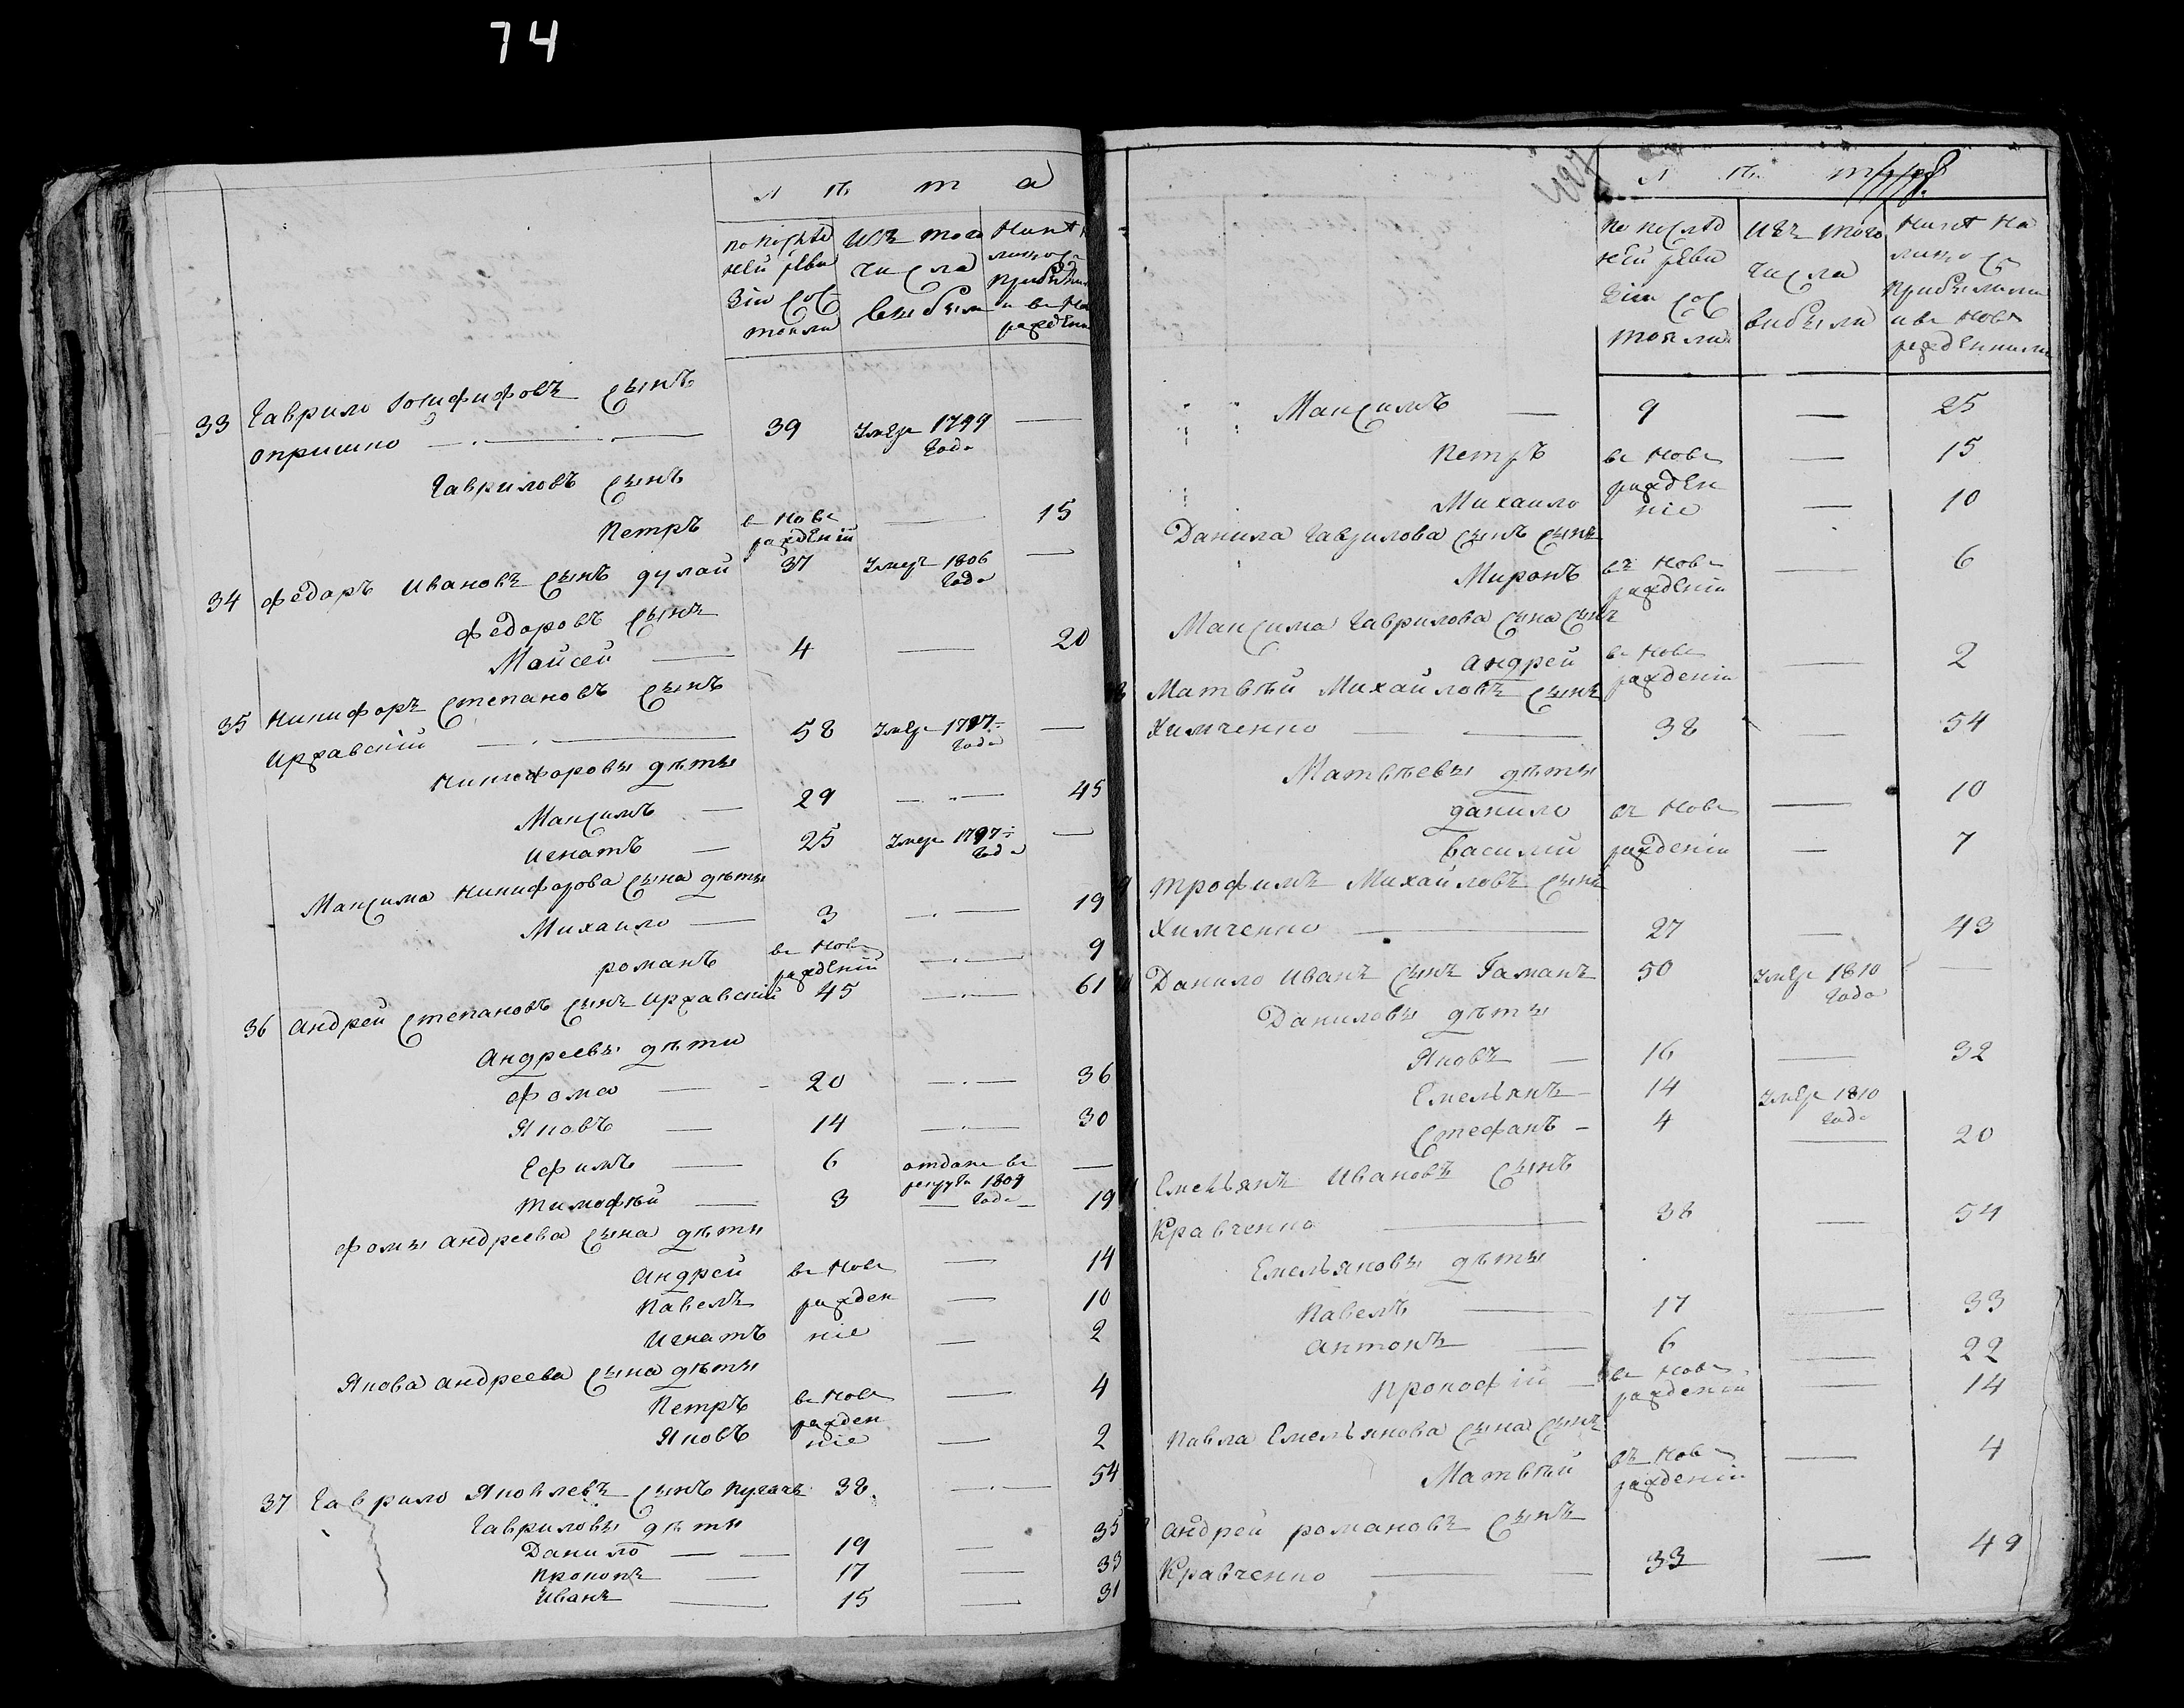 74
Л ѣ т а
по послѣд Изъ того Нинѣ
ней реви числа лицо
зіи сос выбыли
тояли
Гаврило Іосифовъ сынъ
33 Опришко 39 Умре 1799
года
Гавриловъ сынъ
Петръ в нове 15
рожденіи
34 Федоръ Ивановъ сынъ Дулай 37 Умре 1806
года
Федоровъ сынъ
Мойсей 4 20
35 Никифоръ Степановъ сынъ
Иржавскій 58 Умре 1797
года
Никифоровы дѣты
Максимъ 29 45
Игнатъ 25 Умре 1797
года
Максима Никифорова сына дѣты
Михаило 3 19
Романъ в нове 9
рожденіи
36 Андрей Степановъ сынъ Иржавскій 45 61
Андреевы дѣти
Фома 20 36
Яковъ 14 30
Ефимъ 6 отдане в
рекруты 1809
года
Тимофѣй 3 19
Фомы Андреева сына дѣты
Андрей в нове 14
Павелъ рожден 10
Игнатъ ніе 2
Якова Андреева сына дѣты
Петръ в нове 4
рожден
Яковъ ніе 2
37 Гаврило Яковлевъ сынъ Пугачъ 38 54
Гавриловы дѣты
Данило 19 35
Прокопъ 17 33
Иванъ 15 31
Л ѣ т
по послѣд Изъ того Нинѣ на
ней реви числа лицо с
зіи сос выбыли прибылими
тояли и в нове
рожденними
Максимъ 9 25
Петръ в нове 15
рожден
Михаило ніе 10
Данила Гаврилова сынъ сынъ
Миронъ въ нове 6
рожденіи
Максима Гаврилова сына сынъ
Андрей в нове 2
рожденіи
Матвѣй Михайловъ сынъ
Химченко 38 54
Матвѣевы дѣты
Данило въ нове 10
Василий рожденіи 7
Трофимъ Михайловъ сынъ
Химченко 27 43
Данило Иванъ сынъ Гаманъ 50 Умре 1810
года
Даниловы дѣты
Яковъ 16 32
Емельянъ 14 Умре 1810
года
Стефанъ 4 20
Емельянъ Ивановъ сынъ
Кравченко 38 54
Емельяновы дѣты
Павелъ 17 33
Антонъ 6 22
Прокофій в нове 14
рожденіи
Павла Емельянова сына сынъ
Матвѣй въ нове 4
рожденіи
Андрей Романовъ сынъ
Кравченко 33 49